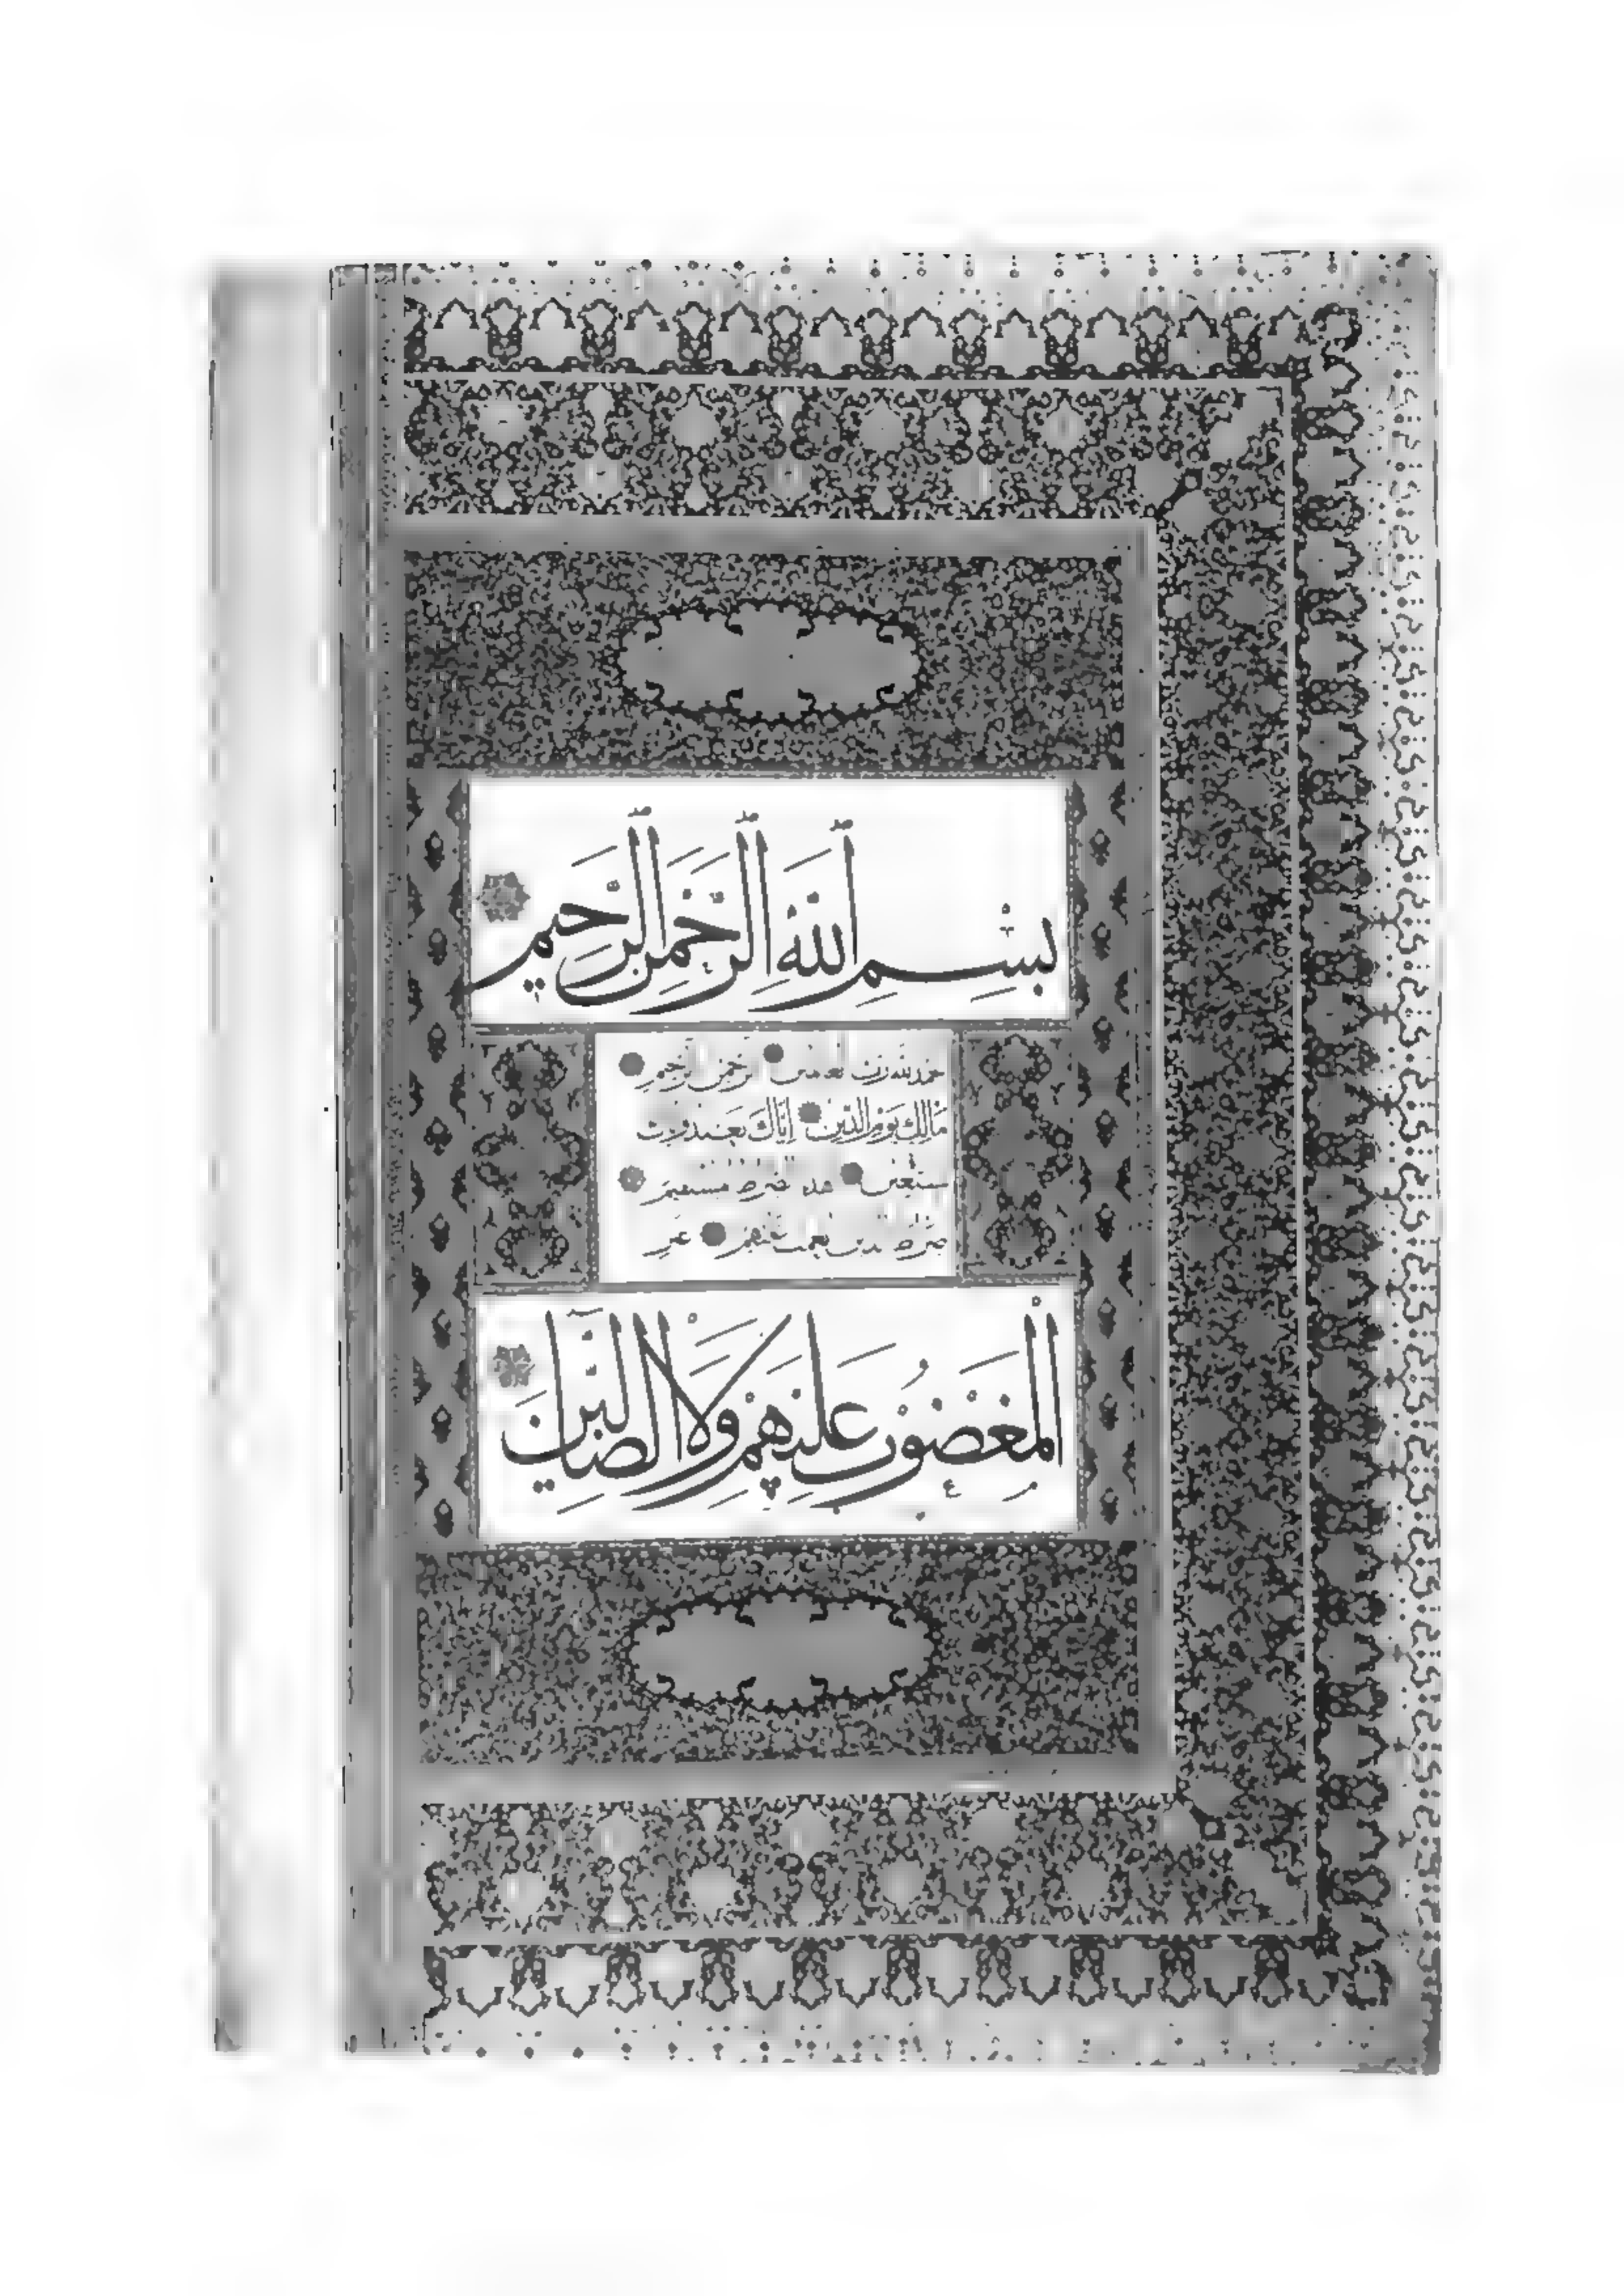 بِسْمِ اللَّهِ الرَّحْمَٰنِ الرَّحِيمِ
الحمد لله رب العالمين الرحمن الرحيم
مَالِكِ يَوْمِ الدِّينِ إِيَّاكَ نَعْبُدُ وَإِيَّاكَ
نستعين اهدنا الصراط المستقيم
صراط الذين أنعمت عليهم غير
الْمَغْضُوبِ عَلَيْهِمْ وَلَا الضَّالِّينَ